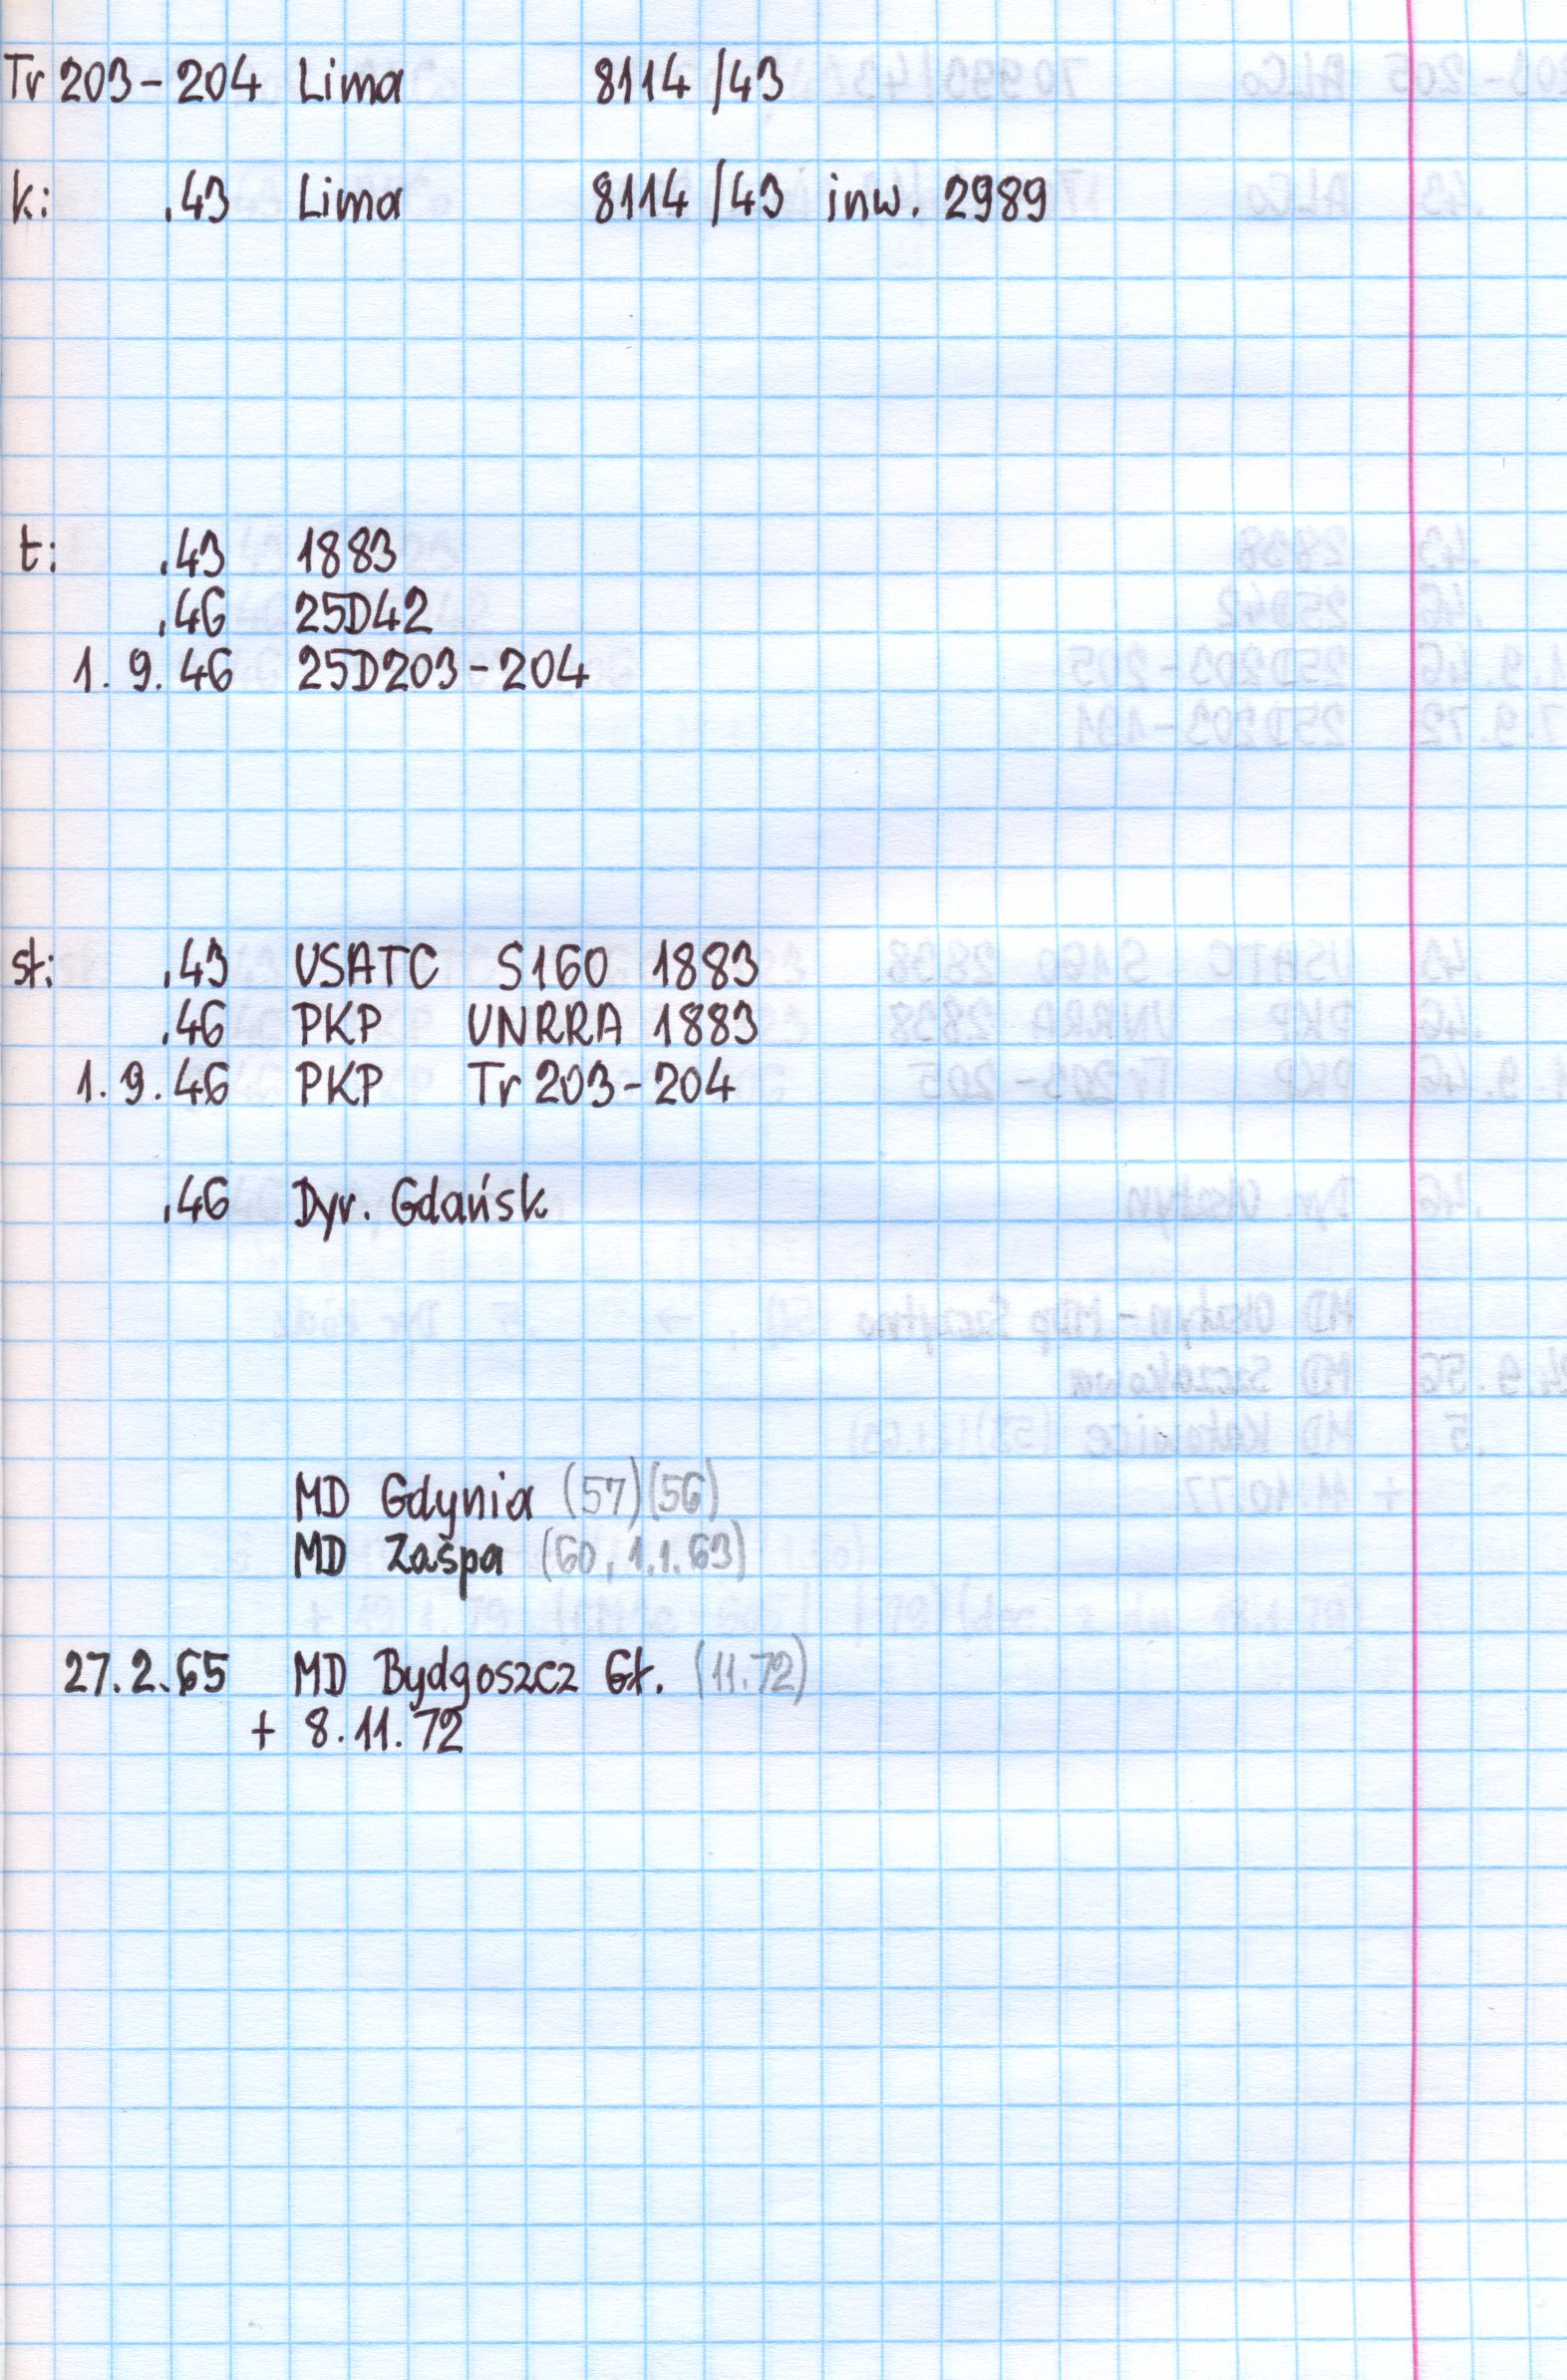 Tr 203-204 Lima 8114/43
k: .43 Lima 8114/43 inw. 2989
t: .43 1883
.46 25D42
1.9.46 25D203-204
st: .43 USATC S160 1883
.46 PKP UNRRA 1883
1.9.46 PKP Tr 203-204
.46 Dyr. Gdańsk
MD Gdynia (57)(56)
MD Zaspa (60, 1.1.63)
27.2.65 MD Bydgoszcz Gł. (11.72)
+ 8.11.72